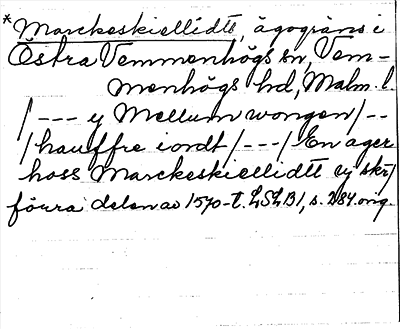 *Marckeskiellidtt, ägogräns i
Östra Vemmenhögs sn, Vem-
menhögs hd, Malm. l.
/--- y Mellum wongen/--
/hauffre iordt/---/ En ager
hoss Marckeskiellidtt vy skr/
förra delen av 1570-t. LSLB1, s. 284. orig.